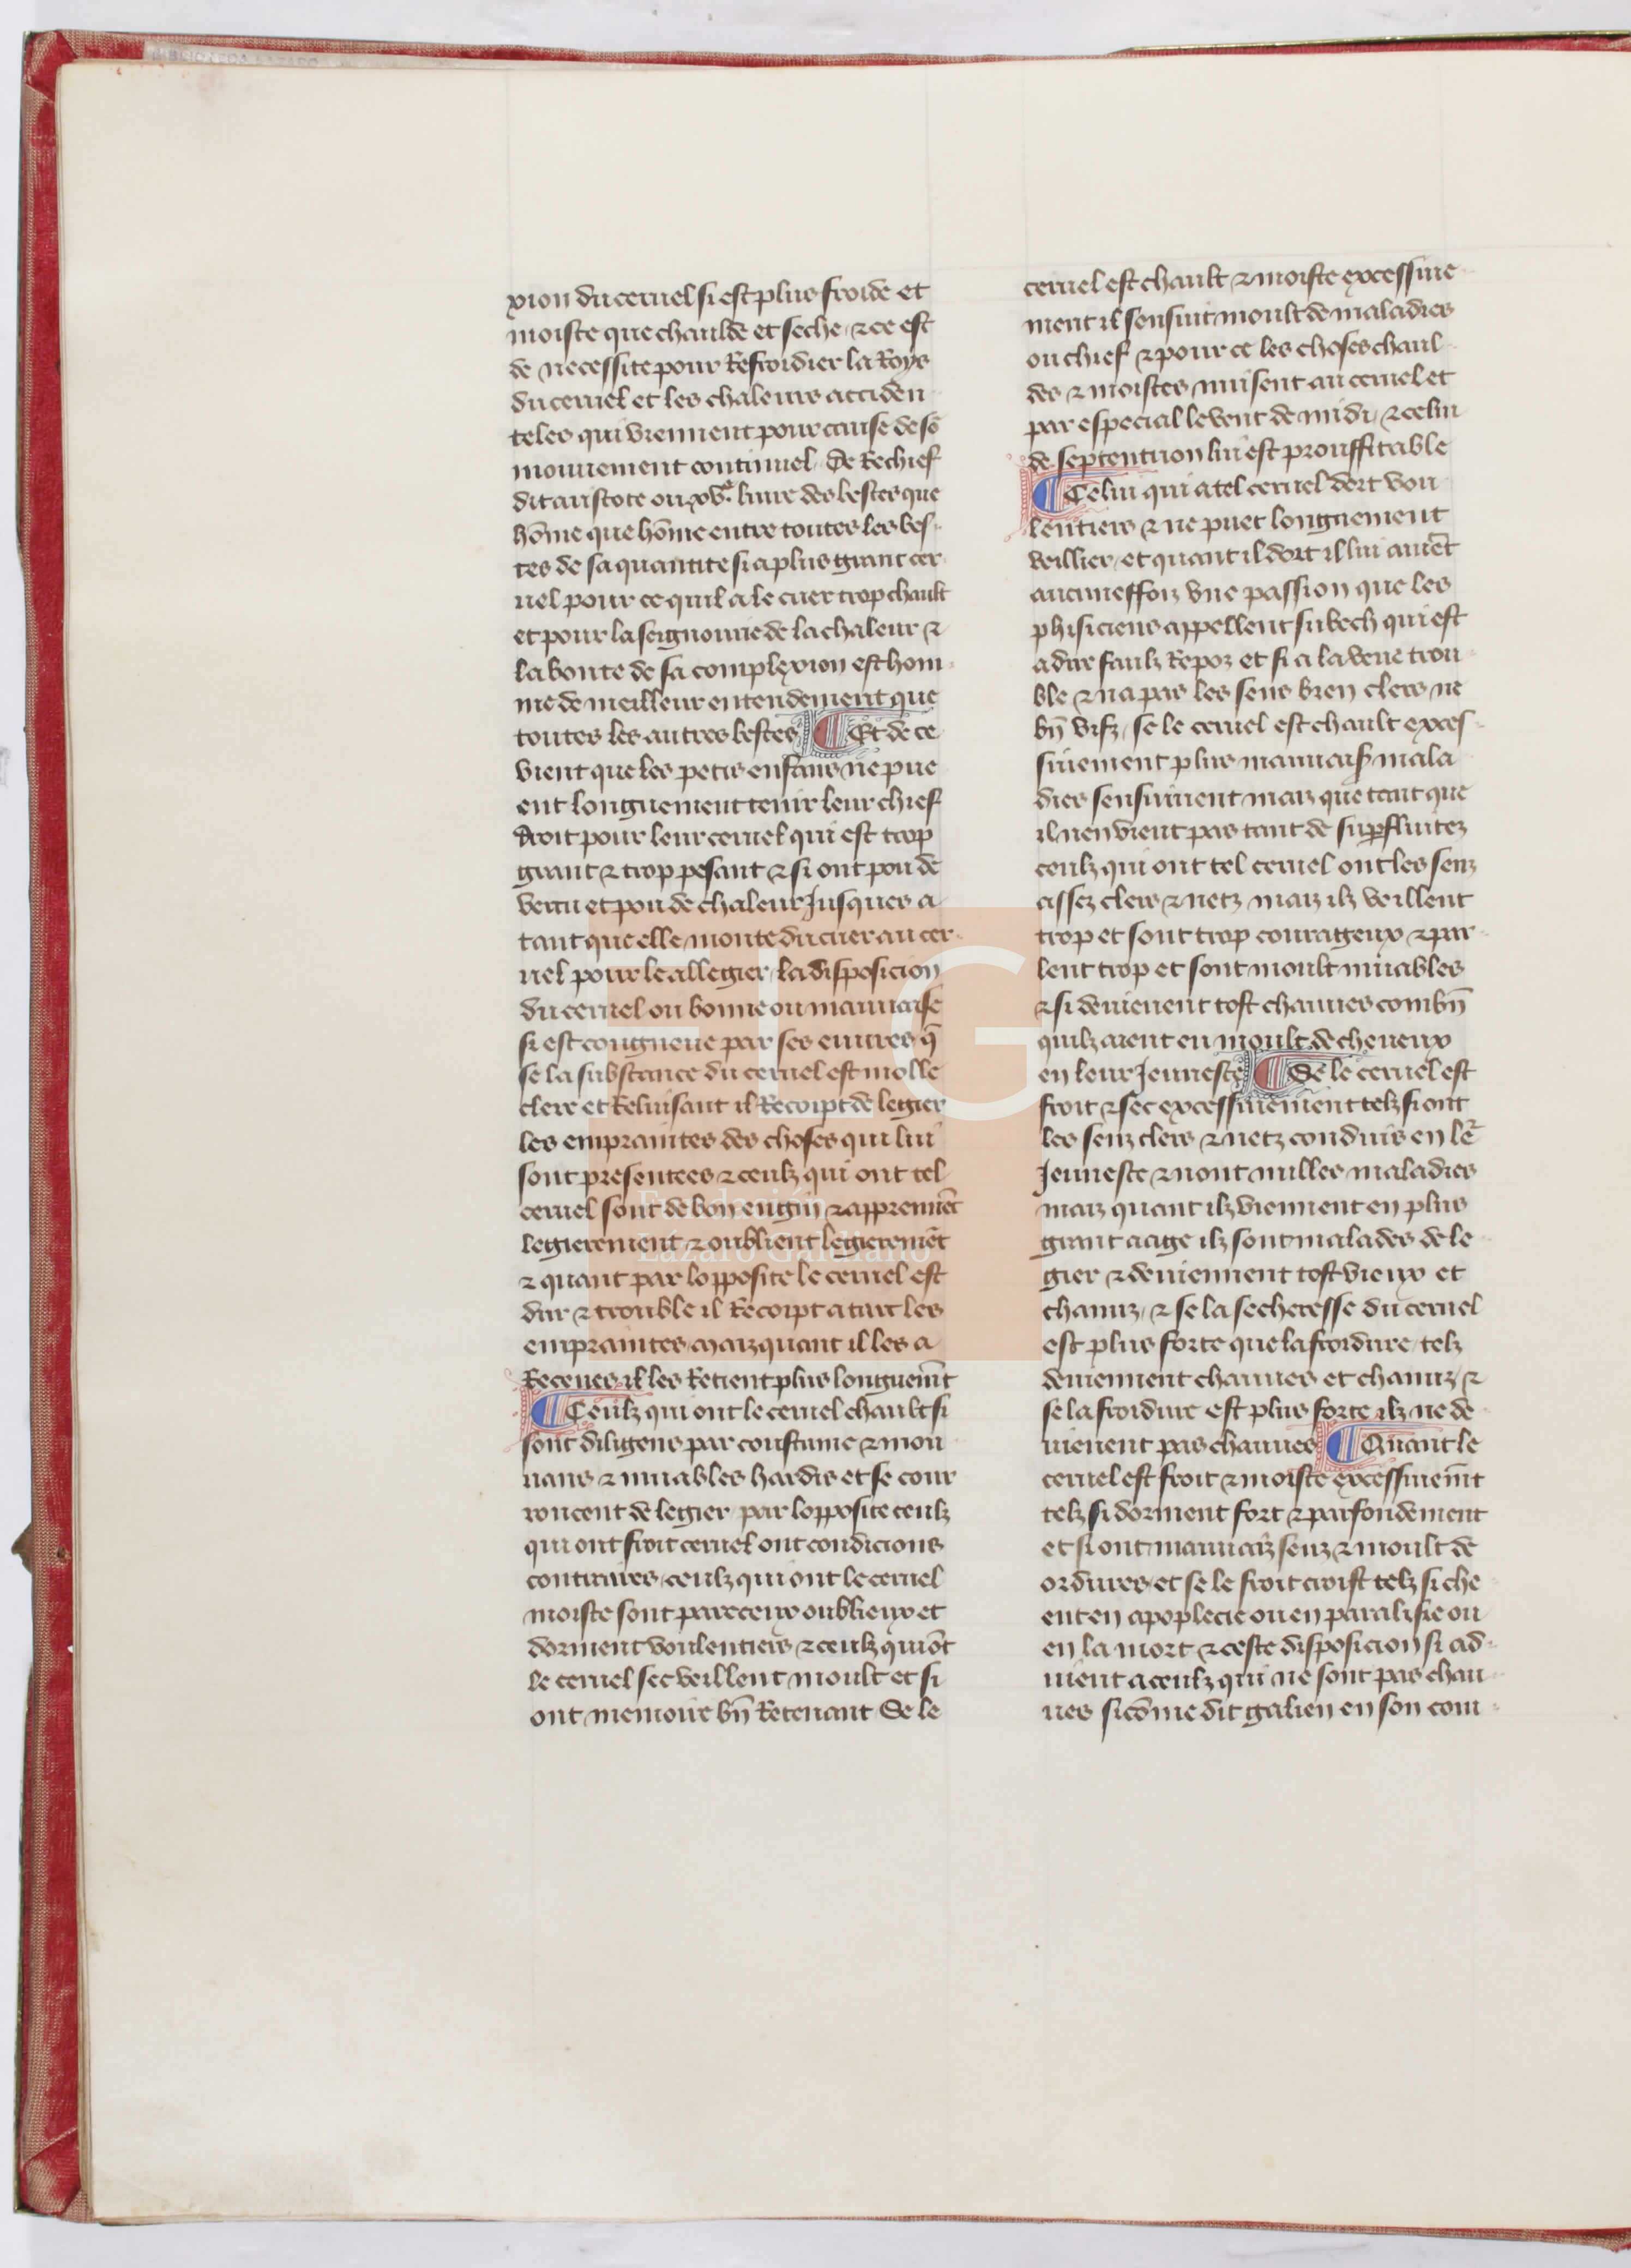 xion du ceruel si est plus froide et
moiste que chaulde et seche / ⁊ ce est
de necessite pour Refroidier la Roys
du ceruel et les chaleurs acciden
teles qui viennent pour cause de sō
mouuement continuel / De Rechief
dit aristote ou xvᵉ liure des bestes que
hōme que hōme entre toutes les bes
tes de sa quantite si a plus grant cer
uel pour ce quil a le cuer trop chault
et pour la seignourie de la chaleur ⁊
la bonte de sa complexion est hom
me de meilleur entendement que
toutes les autres bestes Et de ce
vient que les petis enfans ne pue
ent longuement tenir leur chief
droit pour leur ceruel qui est trop
grant ⁊ trop pesant ⁊ si ont pou de
vertu et pou de chaleur Jusques a
tant que elle monte du cuer au cer
uel pour le allegier / la disposicion
du ceruel ou bonne ou mauuaise
si est congneue par ses euures q̄
se la substance du ceruel est molle
clere et Reluisant il Recoipt de legier
les empraintes des choses qui lui
sont presentees ⁊ ceulz qui ont tel
ceruel sont de bon engin ⁊ apprennēt
legierement ⁊ oublient legieremēt
⁊ quant par lopposite le ceruel est
dur ⁊ trouble il Recoipt a tart les
empraintes / maiz quant il les a
Receues il les Retient plus longuem̄t
Ceulz qui ont le ceruel chault si
sont diligens par coustume ⁊ mou
uans ⁊ muables hardis et se cour
roucent de legier / par lopposite ceulz
qui ont froit ceruel ont condicions
contraires / ceulz qui ont le ceruel
moiste sont pareceux oublieux et
dorment voulentiers ⁊ ceulz qui ōt
le ceruel sec veillent moult et si
ont memoire bn̄ Retenant Se le
ceruel est chault ⁊ moiste excessiue
ment il sensuit moult de maladies
ou chief ⁊ pour ce les choses chaul
des ⁊ moistes nuisent au ceruel et
par especial le vent de midi / ⁊ celui
de septentrion lui est prouffitable
Celui qui a tel ceruel dort vou
lentiers ⁊ ne puet longuement
veillier / et quant il dort il lui auiēt
aucuneffoiz vne passion que les
phisiciens appellent subech qui est
a dire faulz Repoz et si a la veue trou
ble ⁊ na pas les sens bien clers ne
bn̄ vifz / se le ceruel est chault exces
siuement plus mauuaises mala
dies sensuiuent maiz que tant que
il nen vient pas tant de supfluitez
ceulz qui ont tel ceruel ont les senz
assez clers ⁊ netz maiz ilz veillent
trop et sont trop courageux ⁊ par
lent trop et sont moult muables
⁊ si deuienent tost chauues combn̄
quilz aient eu moult de cheueux
en leur Jeunesce Se le ceruel est
froit ⁊ sec excessiuement telz si ont
les senz clers ⁊ netz conduis en lēr
Jeunesce ⁊ nont nulles maladies
maiz quant ilz viennent en plus
grant aage ilz sont malades de le
gier ⁊ deuiennent tost vieux et
chanuz / ⁊ se la secheresse du ceruel
est plus forte que la froidure / telz
deuiennent chauues et chanuz / ⁊
se la froidure est plus forte ilz ne de
uienent pas chauues Quant le
ceruel est froit ⁊ moiste excessiuem̄t
telz si dorment fort ⁊ parfondement
et si ont mauuaiz senz ⁊ moult de
ordures / et se le froit croist telz si che
ent en apoplecie ou en paralisie ou
en la mort ⁊ ceste disposicion si ad
uient a ceulz qui ne sont pas chau
ues sicōme dit galien en son com
FLG
Fundación
Lázaro Galdiano